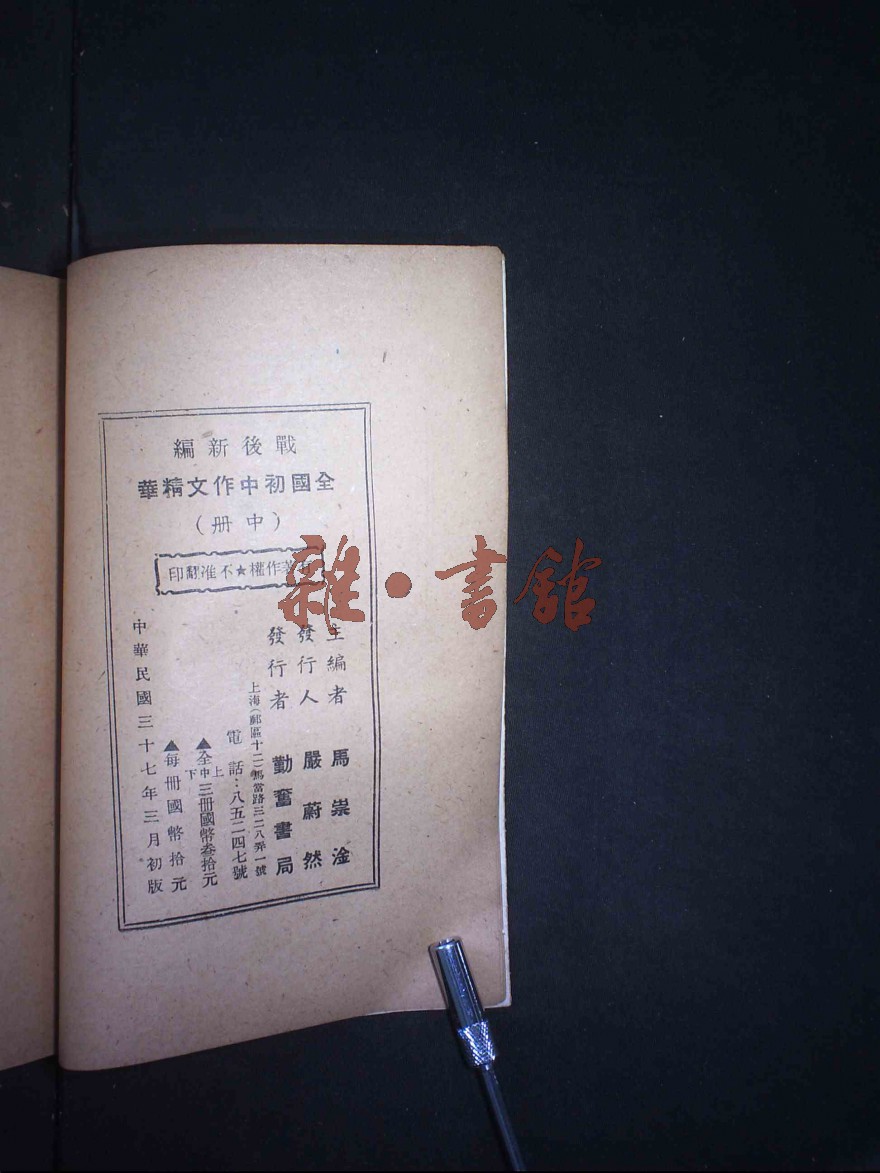 戰後新編
全國初中作文精華
（中册）
有著作權★不准翻印
主編者 馬崇淦
發行人 嚴蔚然
發行者 勤奮書局
上海（郵區十二）馬當路三二八弄一號
電話：八五二四七號
▲全上中下三册國幣叁拾元
▲每册國幣拾元
中華民國三十七年三月初版
雜·書館